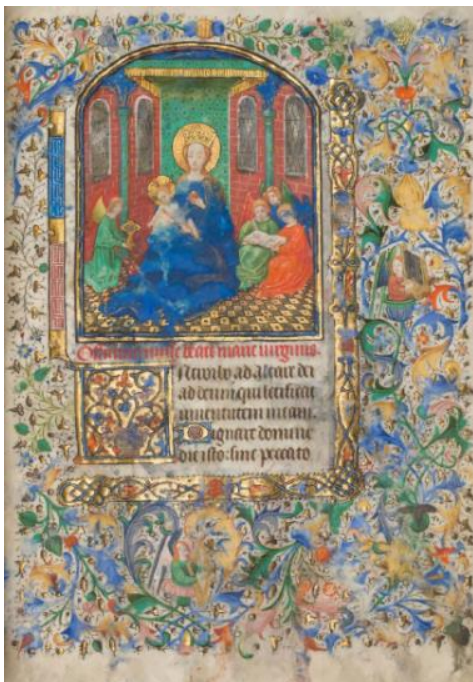 misse beate marie uirginis.
Introibo ad altare dei
ad deum qui letificat
iuuentutem meam.
Dignare domine
die isto: sine peccato